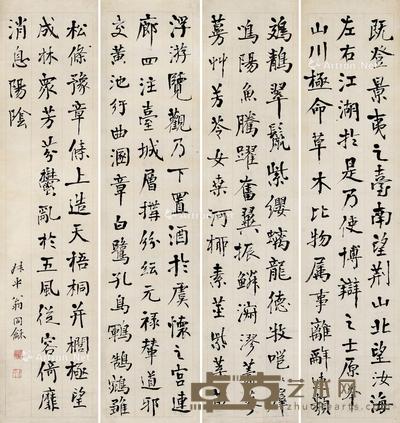 既登景夷之臺南望荆山北望汝海
左右江湖於是乃使博辯之士原本
山川極命草木比物属事離辭連類
鵁鶄翠鬣紫纓螭龍德牧邕邕羣
鳴陽魚騰躍奮翼振鱗漃漻薵蓼
蔓艸芳苓女桑河柳素莖紫葉苗
浮游覽觀乃下置酒於虞懷之宮連
廊四注臺城層構紛紜元緑輦道邪
交黃池紆曲溷章白鷺孔鳥鶤鵠鵷雛
松條豫章條上造天梧桐并櫚極望
成林衆芳芬鬱亂於五風從容猗靡
消息陽陰
叔平翁同龢